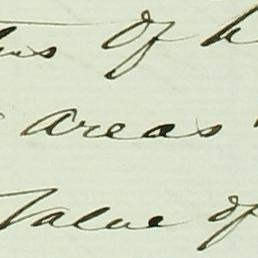 of
areas
Value of